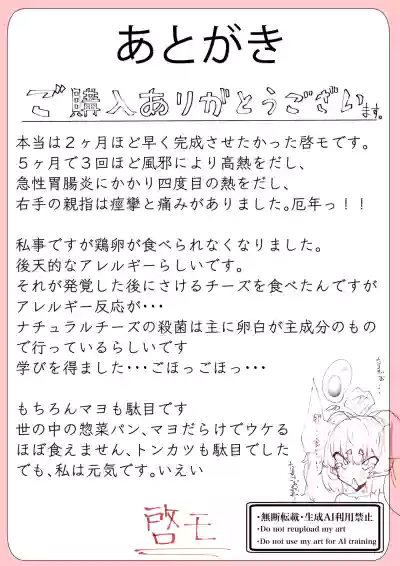 あとがき
ご購入ありがとうございます。
本当は２ヶ月ほど早く完成させたかった啓モです。
５ヶ月で３回ほど風邪により高熱をだし、
急性胃腸炎にかかり四度目の熱をだし、
右手の親指は痙攣と痛みがありました。厄年っ！！
私事ですが鶏卵が食べられなくなりました。
後天的なアレルギーらしいです。
それが発覚した後にさけるチーズを食べたんですが
アレルギー反応が・・・
ナチュラルチーズの殺菌は主に卵白が主成分のもの
で行っているらしいです
学びを得ました・・・ごほっごほっ・・・
もちろんマヨも駄目です
世の中の惣菜パン、マヨだらけでウケる
ほぼ食えません、トンカツも駄目でした
でも、私は元気です。いえい
啓モ
・無断転載・生成AI利用禁止
・Do not reupload my art
・Do not use my art for AI training